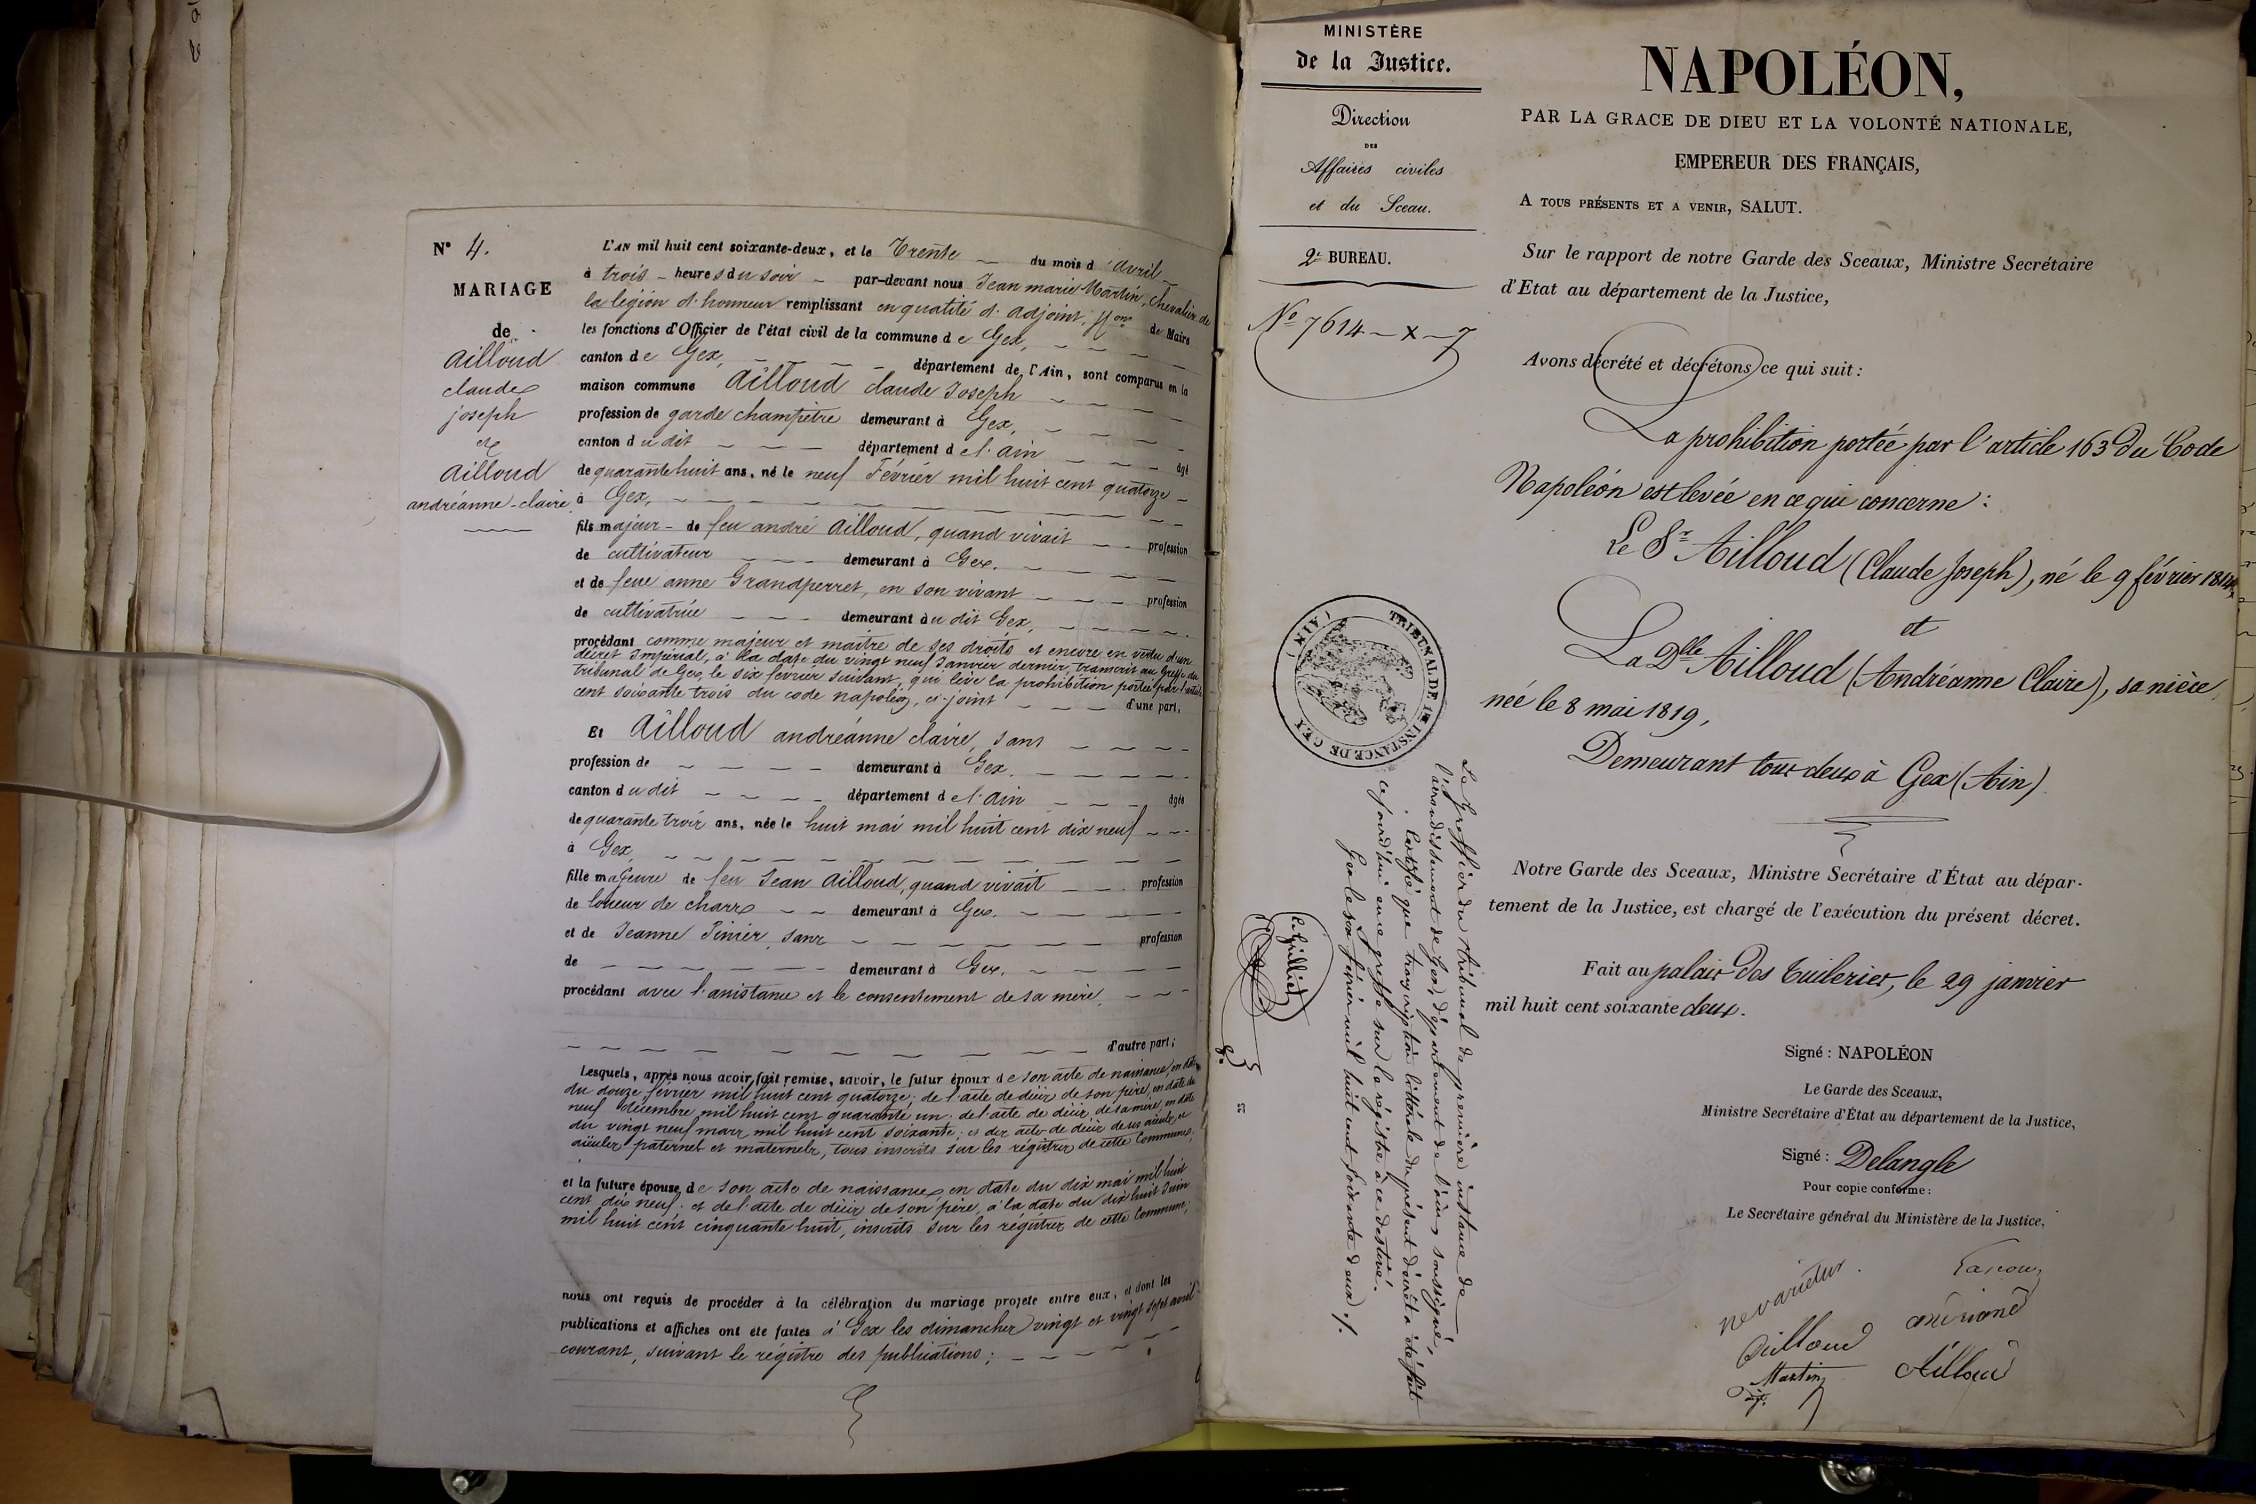 N° 4.
MARIAGE
de
Ailloud
claude
joseph
et
Ailloud
andréanne-claire
L'AN mil huit cent soixante-deux, et le Trente du mois d'avril
à trois heures du soir par-devant nous Jean marie Martin, chevalier de
la légion d'honneur remplissant en qualité d'adjoint, de Maire
les fonctions d'Officier de l'état civil de la commune de Gex,
canton de Gex, département de l'Ain, sont comparus en la
maison commune Ailloud claude Joseph
profession de garde champêtre demeurant à Gex,
canton dudit département de l'ain âgé
de quarante huit ans, né le neuf Février mil huit cent quatorze
à Gex,
fils majeur de feu andré Ailloud, quand vivait profession
de cultivateur demeurant à Gex.
et de feue anne Grandperret, en son vivant profession
de cultivatrice demeurant audit Gex,
procédant comme majeur et maître de ses droits et encore en vertu d'un
décret Impérial, à la date du vingt neuf Janvier dernier, transcrit au Greffe du
tribunal de Gex, le six fevrier suivant, qui lève la prohibition portée par l'article
cent soixante trois du code napoléon, ci-joint d'une part,
Et Ailloud andréanne claire, sans
profession de demeurant à Gex.
canton dudit département de l'ain âgée
de quarante trois ans, née le huit mai mil huit cent dix neuf
à Gex
fille majeure de feu Jean Ailloud, quand vivait profession
de loueur de chars demeurant à Gex.
et de Jeanne Pinier, sans profession
de demeurant à Gex.
procédant avec l'assistance et le consentement de sa mère.
d'autre part;
Lesquels, après nous avoir fait remise, savoir, le futur époux de son acte de naissance, en date
du douze février mil huit cent quatorze; de l'acte de décès de son père, en date du
neuf décembre mil huit cent quarante un; de l'acte de décès de sa mère, en date
du vingt neuf mars mil huit cent soixante; et des actes de décès de ses aïeuls et
aïeules paternels et maternels, tous inscrits sur les régistres de cette Commune;
et la future épouse, de son acte de naissance, en date du dix mai mil huit
cent dix neuf; et de l'acte de décès de son père, à la date du dix huit Juin
mil huit cent cinquante huit, inscrits sur les régistres de cette Commune;
nous ont requis de procéder à la célébration du mariage projeté entre eux, et dont les
publications et affiches ont été faites à Gex les dimanches vingt et vingt sept avril
courant, suivant le régistre des publications;
MINISTÈRE
de la Justice.
Direction
DES
Affaires civiles
et du Sceau.
2e BUREAU.
N° 7614 - X - 7
TRIBUNAL DE 1re INSTANCE DE GEX (AIN)
Le Greffier du tribunal de première instance de
l'arrondissement de Gex, département de l'ain, soussigné,
Certifie que transcription littérale du présent décret a été fait
cejourd'hui en ce greffe sur le régistre à ce destiné.
Gex le six février mil huit cent soixante deux ./.
NAPOLÉON,
PAR LA GRACE DE DIEU ET LA VOLONTÉ NATIONALE,
EMPEREUR DES FRANÇAIS,
A TOUS PRÉSENTS ET A VENIR, SALUT.
Sur le rapport de notre Garde des Sceaux, Ministre Secrétaire
d'Etat au département de la Justice,
Avons décrété et décrétons ce qui suit :
La prohibition portée par l'article 163 du Code
Napoléon est levée en ce qui concerne :
Le Sr Ailloud (Claude Joseph), né le 9 février 1814,
et
La Dlle Ailloud (Andréanne Claire), sa nièce,
née le 8 mai 1819,
Demeurant tous deux à Gex (Ain)
Notre Garde des Sceaux, Ministre Secrétaire d'État au dépar-
tement de la Justice, est chargé de l'exécution du présent décret.
Fait au palais des Tuileries, le 29 janvier
mil huit cent soixante deux.
Signé : NAPOLÉON
Le Garde des Sceaux,
Ministre Secrétaire d'État au département de la Justice,
Signé : Delangle
Pour copie conforme :
Le Secrétaire général du Ministère de la Justice,
ne varietur.
Ailloud
Martin
adj.
Ailloud